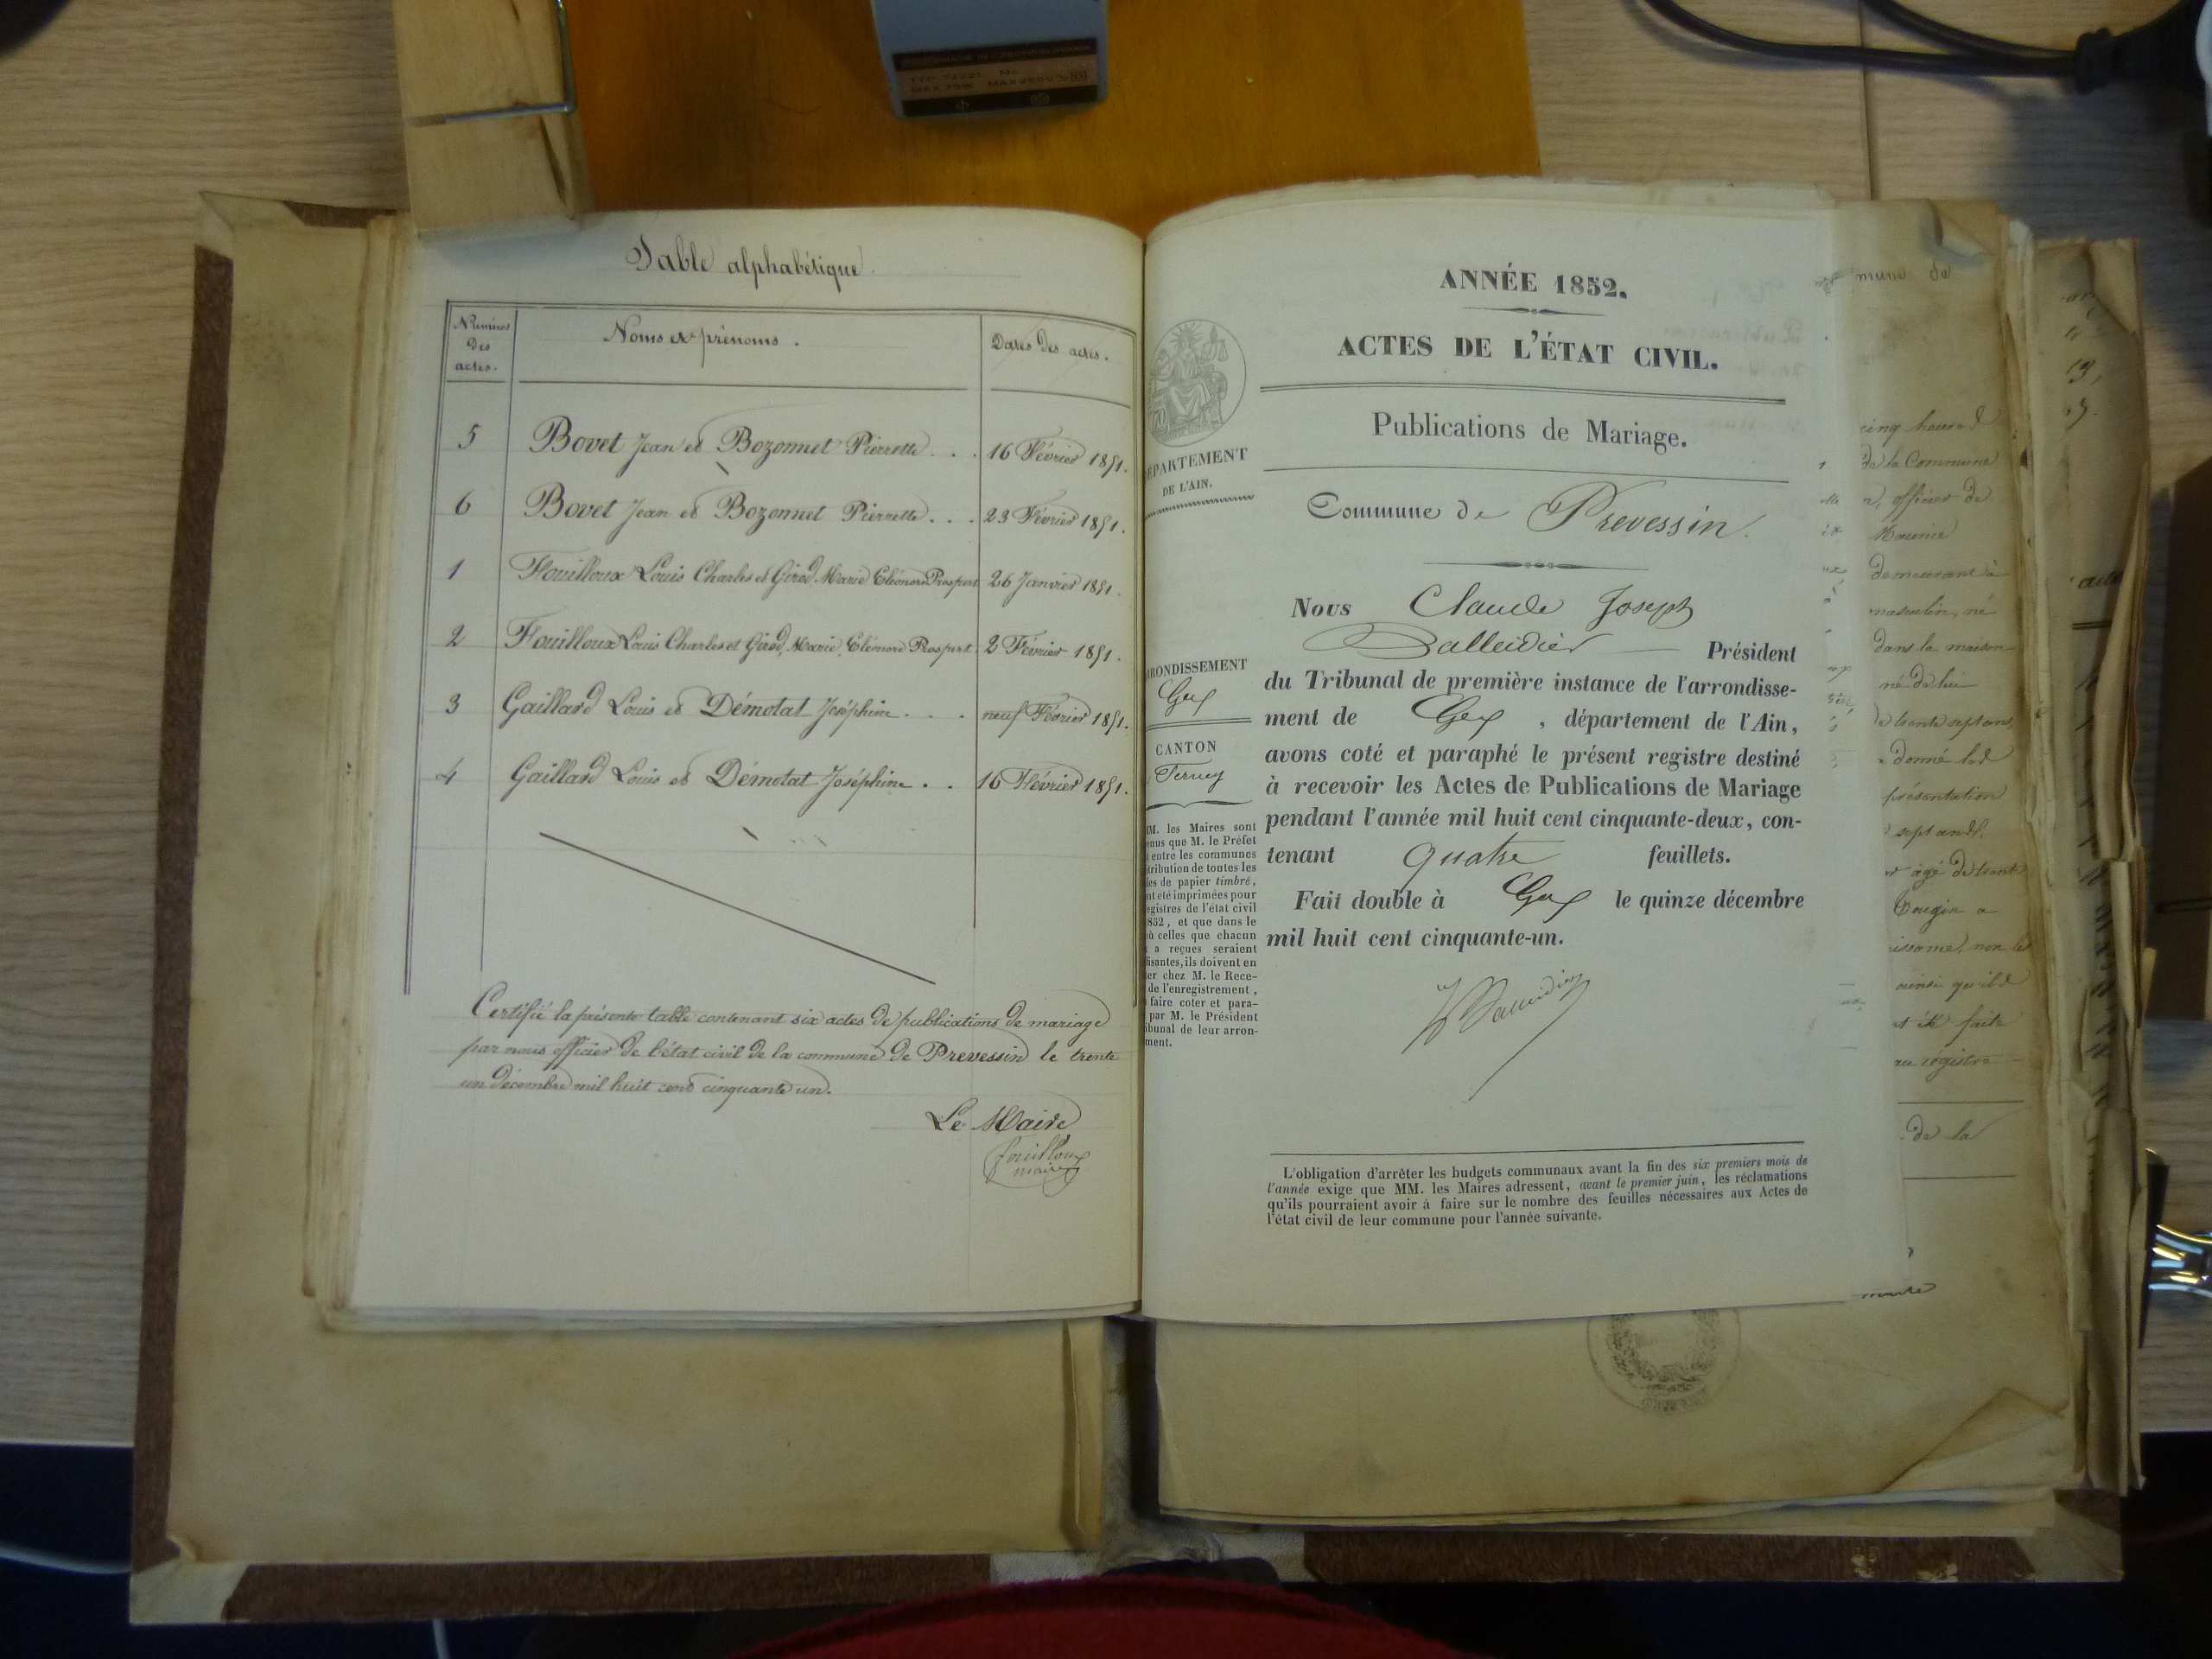 Table alphabétique
Numéros des actes.
Noms et prénoms.
Dates des actes.
5 Bovet Jean et Bozonnet Pierrette . . . 16 Février 1851.
6 Bovet Jean et Bozonnet Pierrette . . . 23 Février 1851.
1 Fouilloux Louis Charles et Girod Marie Eléonore Prospert 26 Janvier 1851.
2 Fouilloux Louis Charles et Girod, Marie, Eléonore Prospert 2 Février 1851.
3 Gaillard Louis et Démotat Joséphine . . . neuf Février 1851.
4 Gaillard Louis et Démotat Joséphine . . 16 Février 1851.
Certifié la présente table contenant six actes de publications de mariage
par nous officier de l'état civil de la commune de Prevessin le trente
un décembre mil huit cent cinquante un.
Le Maire
fouilloux
maire
ANNÉE 1852.
ACTES DE L'ÉTAT CIVIL.
Publications de Mariage.
ÉPARTEMENT
DE L'AIN.
Commune de Prevessin.
Nous Claude Joseph
Balleidier Président
du Tribunal de première instance de l'arrondisse-
ment de Gex, département de l'Ain,
avons coté et paraphé le présent registre destiné
à recevoir les Actes de Publications de Mariage
pendant l'année mil huit cent cinquante-deux, con-
tenant quatre feuillets.
Fait double à Gex le quinze décembre
mil huit cent cinquante-un.
RONDISSEMENT
Gex
CANTON
Ferney
M. les Maires sont
enus que M. le Préfet
entre les communes
tribution de toutes les
les de papier timbré,
nt été imprimées pour
egistres de l'état civil
852, et que dans le
où celles que chacun
a reçues seraient
fisantes, ils doivent en
er chez M. le Rece-
de l'enregistrement,
faire coter et para-
par M. le Président
ibunal de leur arron-
ment.
L'obligation d'arrêter les budgets communaux avant la fin des six premiers mois de
l'année exige que MM. les Maires adressent, avant le premier juin, les réclamations
qu'ils pourraient avoir à faire sur le nombre des feuilles nécessaires aux Actes de
l'état civil de leur commune pour l'année suivante.
mune de
cinq heures
de la Commune
officier de
Maurice
demeurant à
masculin, né
dans la maison
né de lui
de trente sept ans,
donné les
présentation
sept ans
âgé de trente
Gougin a
non le
ainsi qu'il
été faite
registre
de la